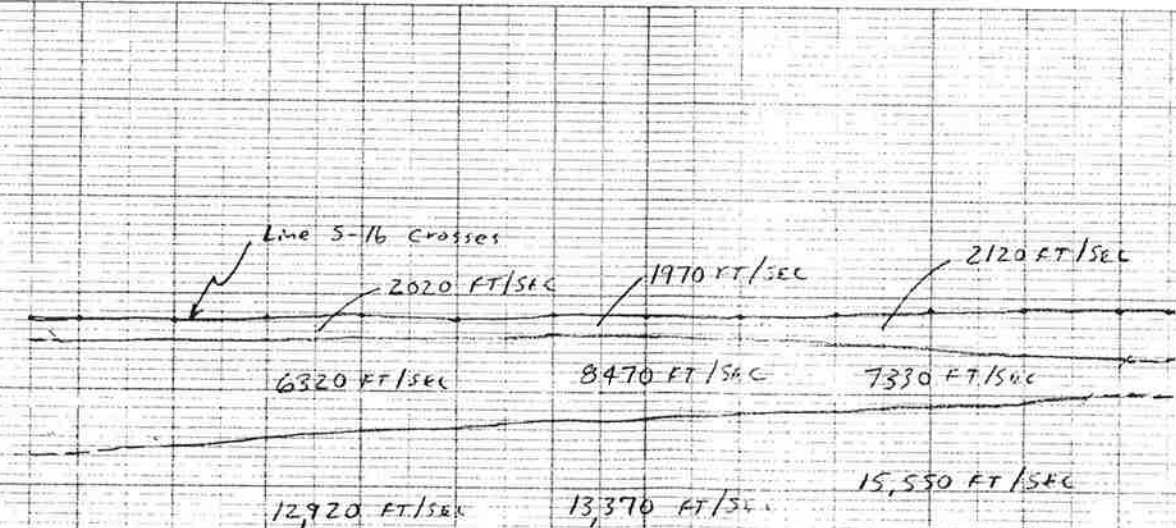 Line S-16 crosses
2020 FT/SEC
1970 FT/SEC
2120 FT/SEC
6320 FT/SEC
8470 FT/SEC
7330 FT/SEC
12,920 FT/SEC
13,370 FT/SEC
15,550 FT/SEC